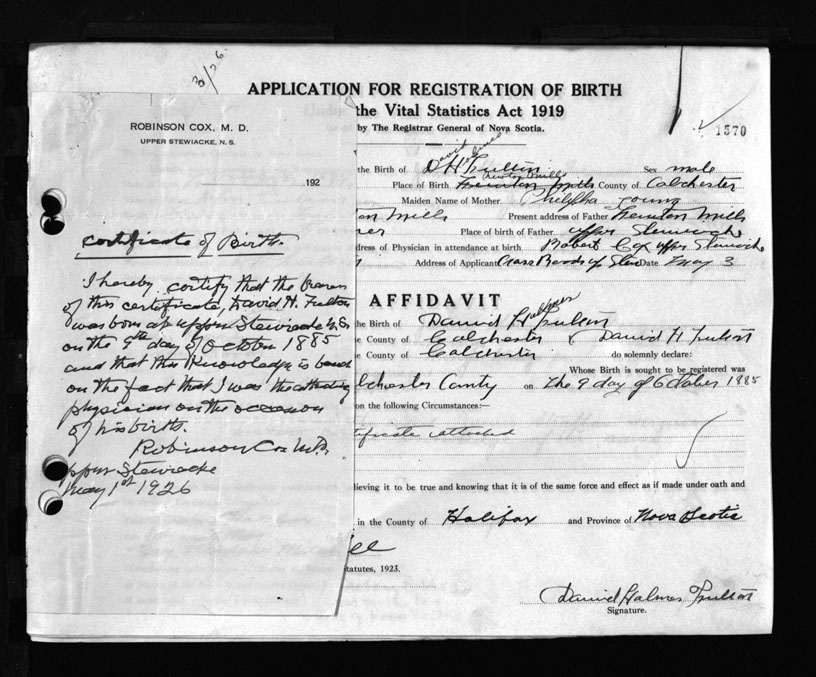 3/26.
APPLICATION FOR REGISTRATION OF BIRTH
the Vital Statistics Act 1919
by The Registrar General of Nova Scotia.
1570
ROBINSON COX, M. D.
UPPER STEWIACKE, N. S.
192
Certificate of Birth.
I hereby certify that the bearer
of this certificate, David H. Fulton
was born at Upper Stewiacke N.S.
on the 9th day of October 1885
and that this Knowledge is based
on the fact that I was the attending
physician on the occasion
of his birth.
Robinson Cox M.D.
pper Stewiacke
May 1st 1926
David
the Birth of D H Fulton Sex male
Place of Birth Newton Mills County of Colchester
Maiden Name of Mother Young
on Mills Present address of Father Newton Mills
ner Place of birth of Father Upper Stewiacke
dress of Physician in attendance at birth Robert Cox Upper Stewiacke
Address of Applicant Date May 3
AFFIDAVIT
the Birth of David H Fulton
he County of Colchester David H Fulton
he County of Colchester do solemnly declare:
Whose Birth is sought to be registered was
lchester County on The 9 day of October 1885
on the following Circumstances:—
tificate attached
lieving it to be true and knowing that it is of the same force and effect as if made under oath and
in the County of Halifax and Province of Nova Scotia
tatutes, 1923.
David Holmes Fulton
Signature.